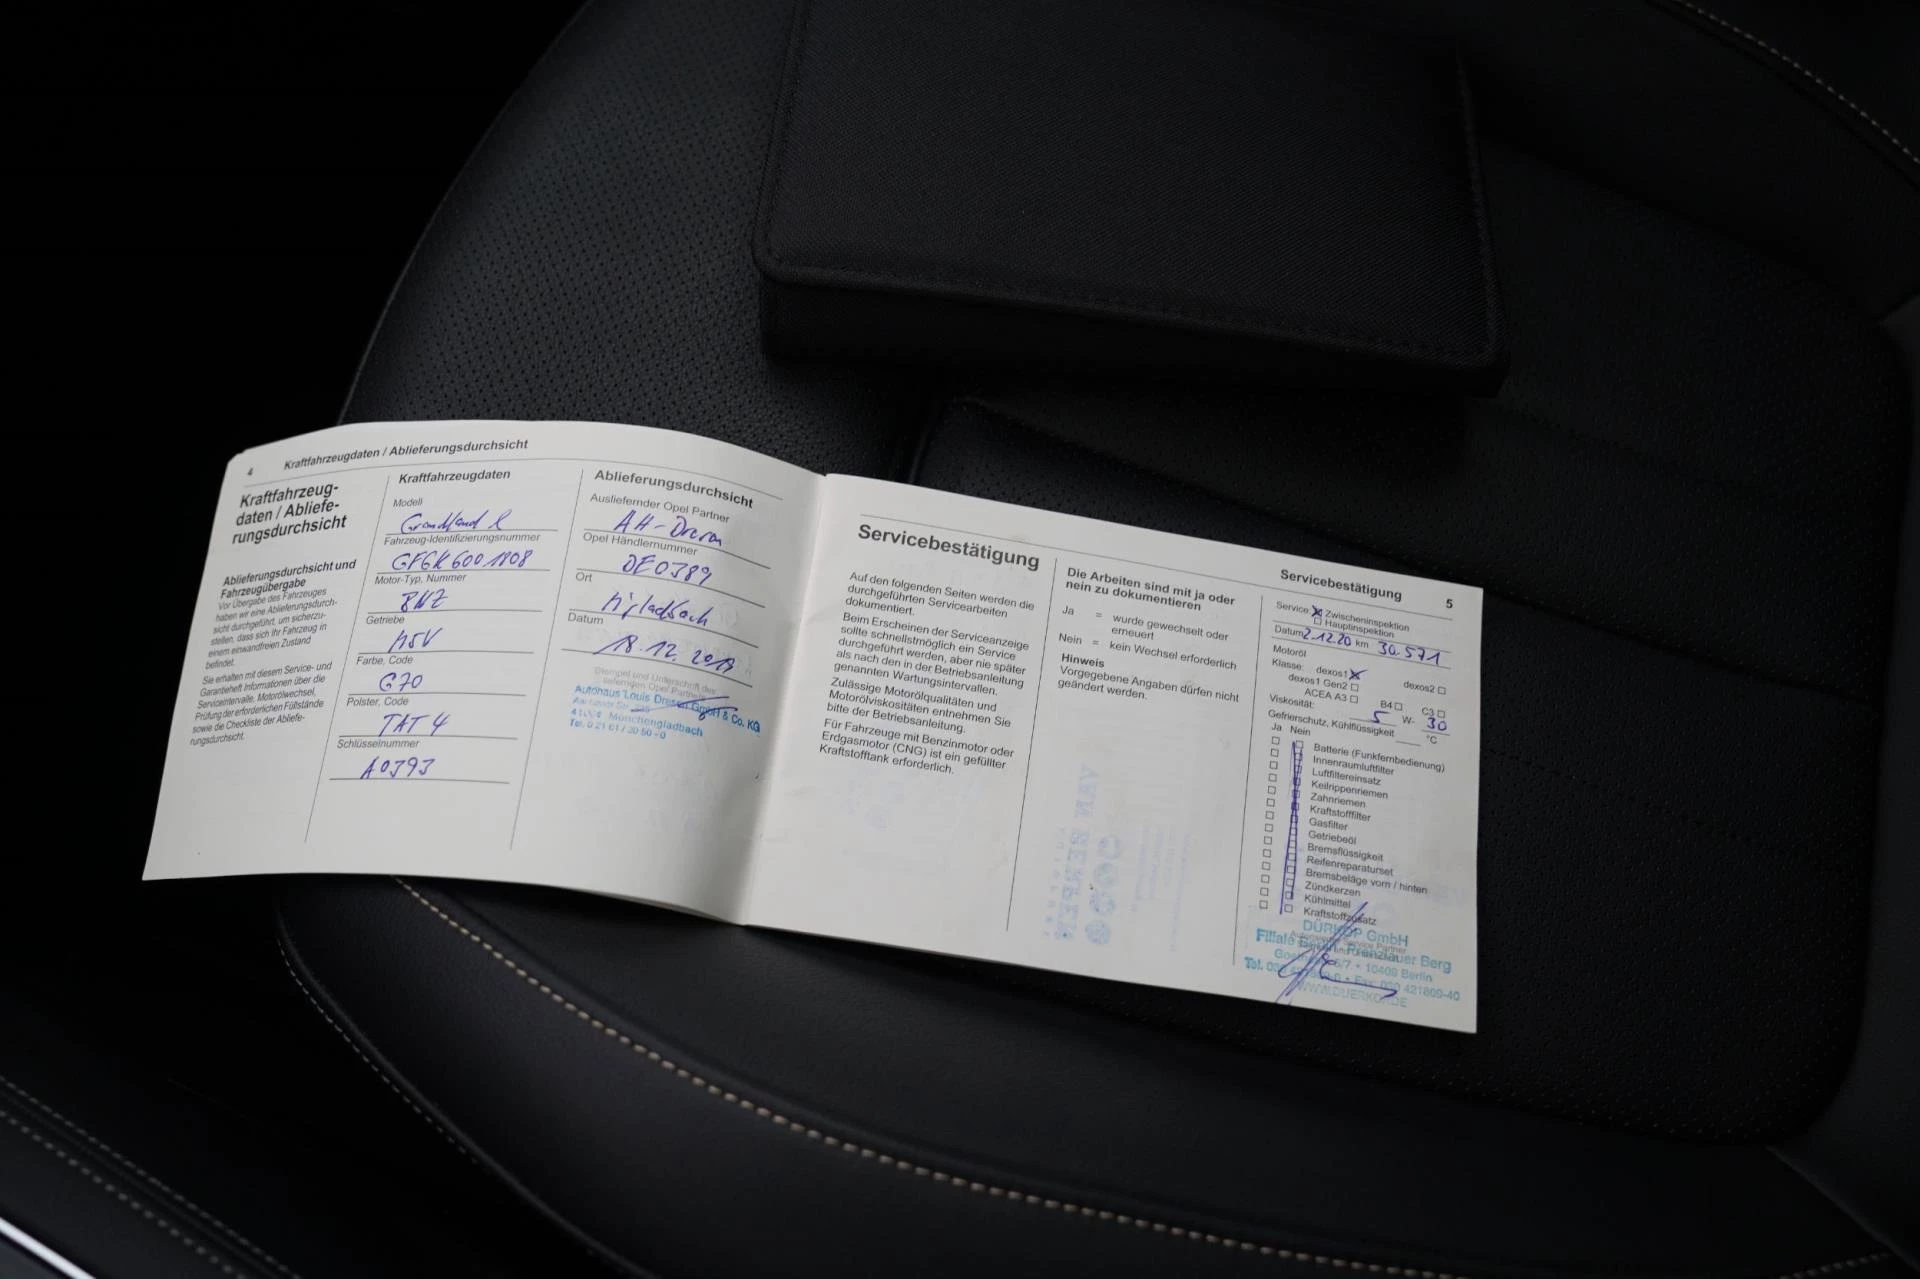 4 Kraftfahrzeugdaten / Ablieferungsdurchsicht
Kraftfahrzeug-
daten / Abliefe-
rungsdurchsicht
Ablieferungsdurchsicht und
Fahrzeugübergabe
Vor Übergabe des Fahrzeuges
haben wir eine Ablieferungsdurch-
sicht durchgeführt, um sicherzu-
stellen, dass sich Ihr Fahrzeug in
einem einwandfreien Zustand
befindet.
Sie erhalten mit diesem Service- und
Garantieheft Informationen über die
Serviceintervalle, Motorölwechsel,
Prüfung der erforderlichen Füllstände
sowie die Checkliste der Abliefe-
rungsdurchsicht.
Kraftfahrzeugdaten
Modell
Grandland
Fahrzeug-Identifizierungsnummer
Motor-Typ, Nummer
Getriebe
Farbe, Code
G70
Polster, Code
TAT 4
Schlüsselnummer
A0393
Ablieferungsdurchsicht
Ausliefernder Opel Partner
AH-
Opel Händlernummer
DE0389
Ort
Datum
18.12.
Stempel und Unterschrift des
liefernden Opel Partners
Autohaus Louis Dresen GmbH & Co. KG
Mönchengladbach
Servicebestätigung
Auf den folgenden Seiten werden die
durchgeführten Servicearbeiten
dokumentiert.
Beim Erscheinen der Serviceanzeige
sollte schnellstmöglich ein Service
durchgeführt werden, aber nie später
als nach den in der Betriebsanleitung
genannten Wartungsintervallen.
Zulässige Motorölqualitäten und
Motorölviskositäten entnehmen Sie
bitte der Betriebsanleitung.
Für Fahrzeuge mit Benzinmotor oder
Erdgasmotor (CNG) ist ein gefüllter
Kraftstofftank erforderlich.
Die Arbeiten sind mit ja oder
nein zu dokumentieren
Ja = wurde gewechselt oder
erneuert
Nein = kein Wechsel erforderlich
Hinweis
Vorgegebene Angaben dürfen nicht
geändert werden.
Servicebestätigung 5
Service: Zwischeninspektion
Hauptinspektion
Datum 2.12.20 km 30.571
Motoröl
Klasse: dexos1 dexos2
dexos1 Gen2
ACEA A3 B4 C3
Viskosität: 5 W- 30
Gefrierschutz, Kühlflüssigkeit °C
Ja Nein
Batterie (Funkfernbedienung)
Innenraumluftfilter
Luftfiltereinsatz
Keilrippenriemen
Zahnriemen
Kraftstofffilter
Gasfilter
Getriebeöl
Bremsflüssigkeit
Reifenreparaturset
Bremsbeläge vorn / hinten
Zündkerzen
Kühlmittel
Kraftstoffzusatz
DÜRKOP GmbH
Filiale Prenzlauer Berg
10409 Berlin
Fax: 030 421809-40
WWW.DUERKOP.DE